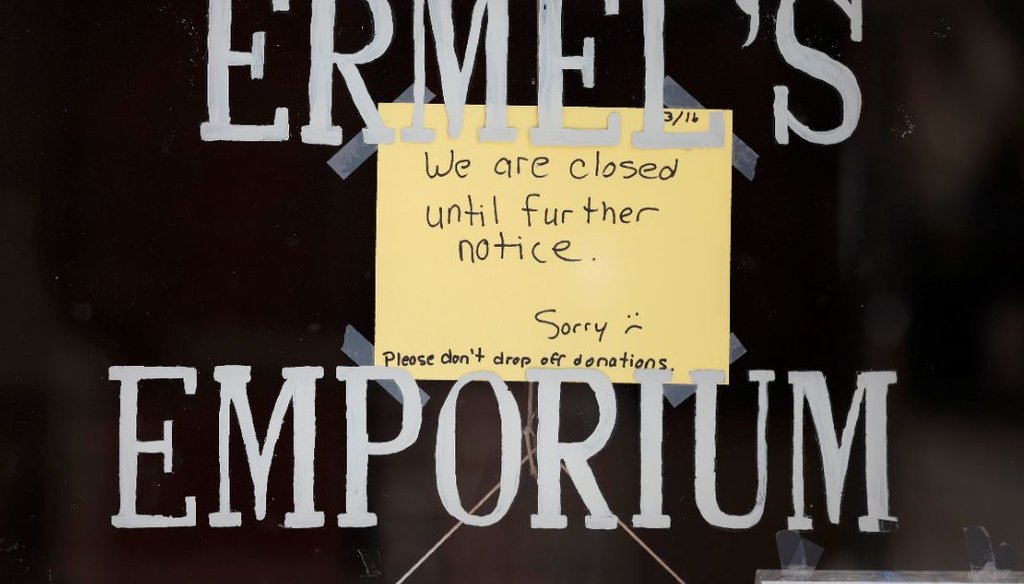 ERMEL'S
3/16
We are closed
until further
notice.
Sorry :(
Please don't drop off donations.
EMPORIUM